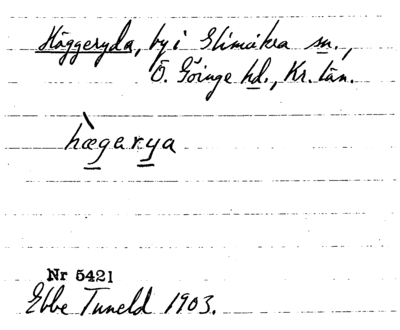 Häggeryda, by i Glimåkra sn.,
Ö. Göinge hd., Kr. län.
hægerya
Nr 5421
Ebbe Tuneld 1903.